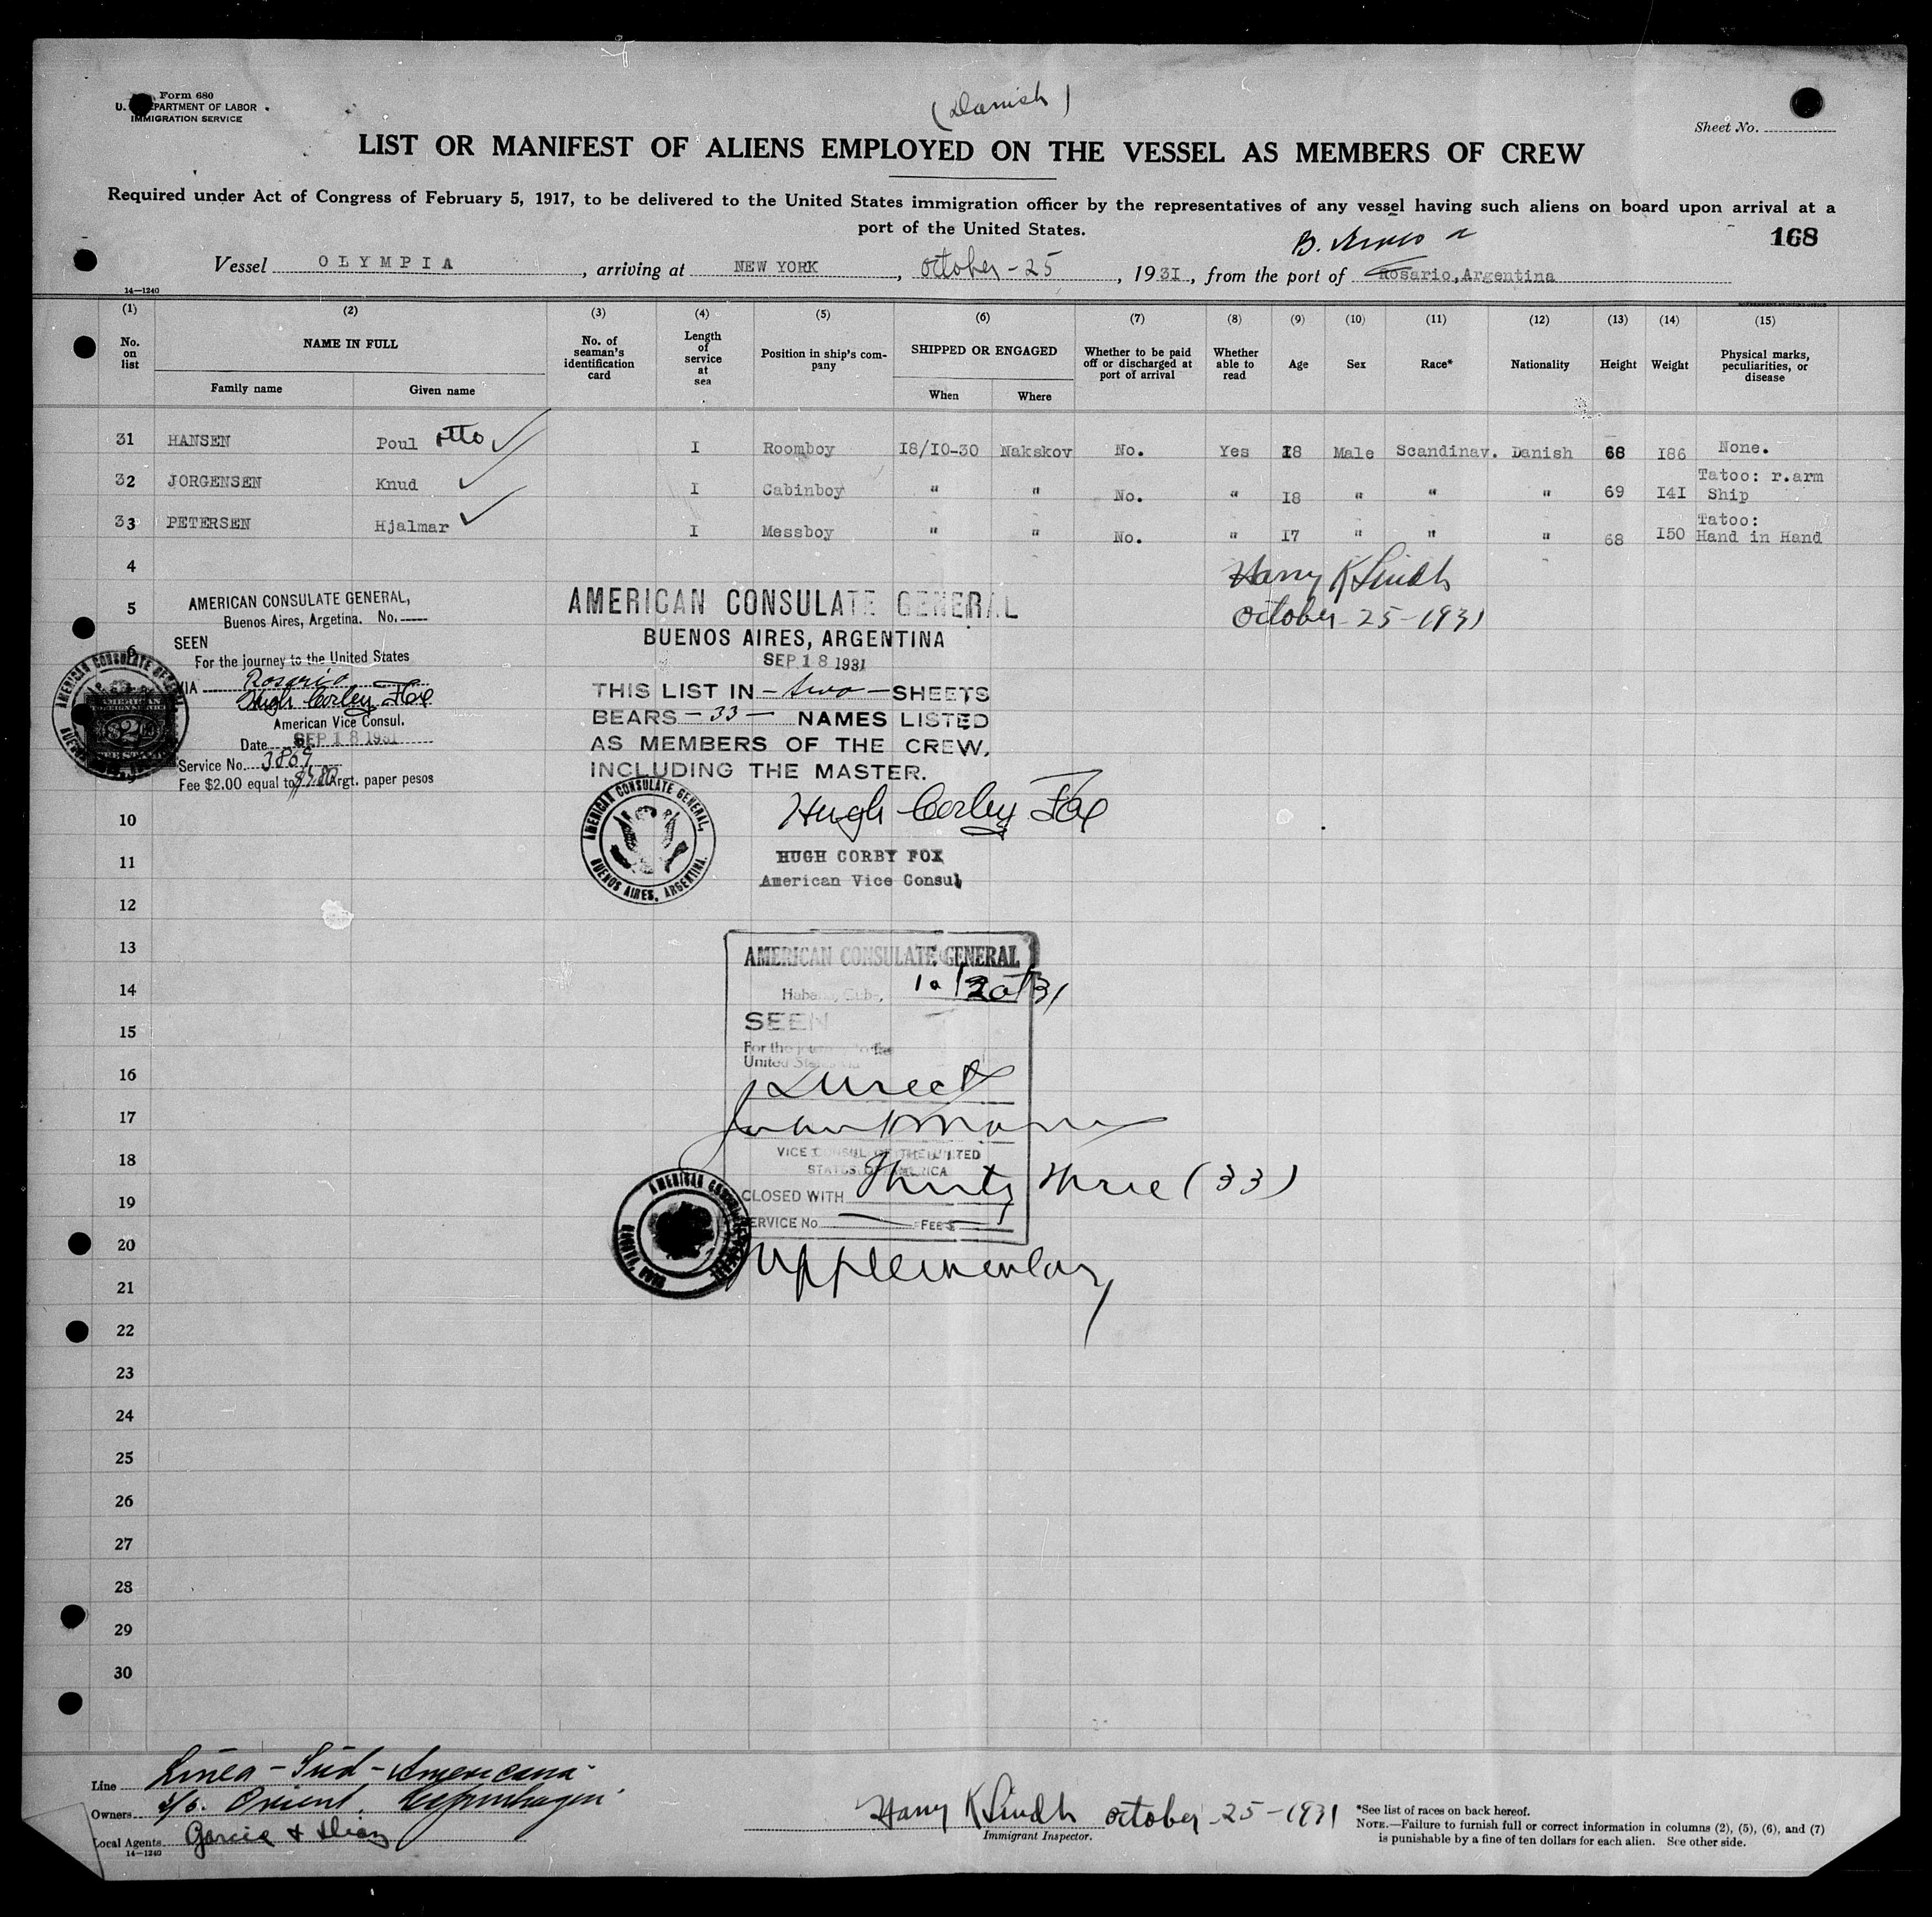 Form 680
U. DEPARTMENT OF LABOR
IMMIGRATION SERVICE
(Danish)
Sheet No.
LIST OR MANIFEST OF ALIENS EMPLOYED ON THE VESSEL AS MEMBERS OF CREW
Required under Act of Congress of February 5, 1917, to be delivered to the United States immigration officer by the representatives of any vessel having such aliens on board upon arrival at a
port of the United States.
168
Vessel OLYMPIA, arriving at NEW YORK, October-25, 1931, from the port of Rosario, Argentina
14-1240
(1) (2) (3) (4) (5) (6) (7) (8) (9) (10) (11) (12) (13) (14) (15)
No. on list
NAME IN FULL
Family name
Given name
No. of seaman's identification card
Length of service at sea
Position in ship's company
SHIPPED OR ENGAGED
When
Where
Whether to be paid off or discharged at port of arrival
Whether able to read
Age
Sex
Race*
Nationality
Height
Weight
Physical marks, peculiarities, or disease
31 HANSEN Poul Otto I Roomboy I8/I0-30 Nakskov No. Yes I8 Male Scandinav. Danish 68 I86 None.
32 JORGENSEN Knud I Cabinboy " " No. " I8 " " " 69 I4I Tatoo: r.arm Ship
33 PETERSEN Hjalmar I Messboy " " No. " I7 " " " 68 I50 Tatoo: Hand in Hand
Harry K Lindh
October 25-1931
4
5
6
AMERICAN CONSULATE GENERAL,
Buenos Aires, Argetina. No.
SEEN
For the journey to the United States
VIA Rosario
Hugh Corby Fox
American Vice Consul.
Date SEP 18 1931
Service No. 3869
Fee $2.00 equal to Argt. paper pesos
AMERICAN CONSULATE GENERAL
BUENOS AIRES, ARGENTINA
SEP 18 1931
THIS LIST IN -two- SHEETS
BEARS -33- NAMES LISTED
AS MEMBERS OF THE CREW,
INCLUDING THE MASTER.
Hugh Corby Fox
AMERICAN CONSULATE GENERAL,
BUENOS AIRES, ARGENTINA.
HUGH CORBY FOX
American Vice Consul
10
11
12
13
14
15
16
17
18
19
20
21
22
23
24
25
26
27
28
29
30
AMERICAN CONSULATE GENERAL
Habana, Cuba, 10/20/31
SEEN
For the journey to the
United States via
Direct
VICE CONSUL OF THE UNITED
STATES OF AMERICA
CLOSED WITH Thirty three (33)
SERVICE No. FEE $
Supplementary
Line Linea-Sud-Americana
Owners s/s. Orient, Copenhagen
Local Agents Garcia & Diaz
14-1240
Harry K Lindh October-25-1931
Immigrant Inspector.
*See list of races on back hereof.
NOTE.—Failure to furnish full or correct information in columns (2), (5), (6), and (7)
is punishable by a fine of ten dollars for each alien. See other side.